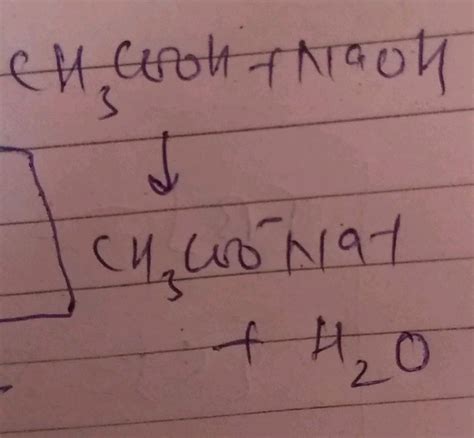 CH₃COOH + NaOH
↓
CH₃COO⁻Na+
+ H₂O